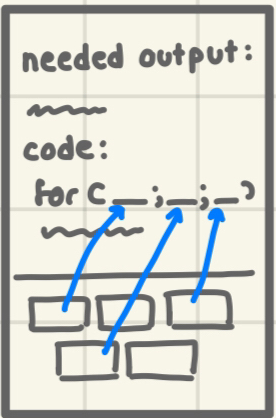 needed output:
code:
for (__;__;__)